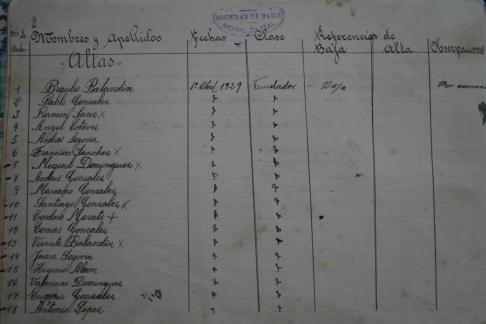 2
SOCIEDAD DE BAILE
Nombres y Apellidos Fechas Clase Referencias de Observaciones
Orden Baja Alta
Altas
1 Braulio Balandin 1º Abril 1929 Fundador - Baja Por
2 Pablo Gonzalez " "
3 Ramon Sanz x " "
4 Angel Esteves " "
5 Andres Segovia " "
6 Francisco Sanchez x " "
7 Miguel Dominguez x " "
8 Andres Gonzalez " "
9 Mariano Gonzalez " "
10 Santiago Gonzalez x " "
11 Teodoro Morato + " "
12 Tomas Gonzalez " "
13 Vicente Balandin x " "
14 Juan Segovia " "
15 Higinio " "
16 Valeriano Dominguez " "
17 Eugenio Gonzalez " "
18 Antonio Lopez " "